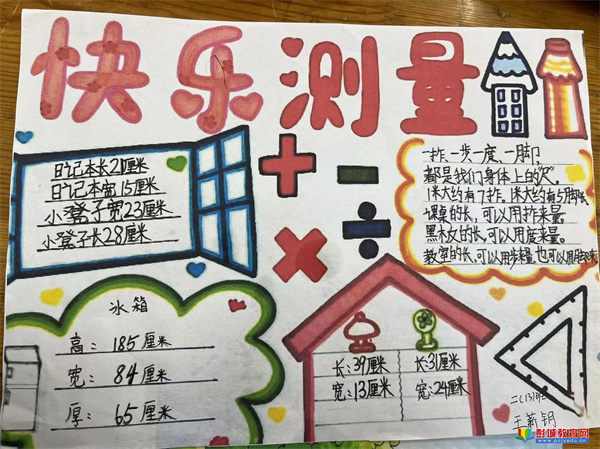 快乐测量
日记本长21厘米
日记本宽15厘米
小凳子宽23厘米
小凳子长28厘米
一拃、一步、一度、一脚,
都是我们身体上的尺,
1米大约有7拃,1米大约有5脚长
课桌的长,可以用拃来量。
黑板的长,可以用度来量。
教室的长,可以用步来量,也可以用脚来
冰箱
高:185厘米
宽:84厘米
厚:65厘米
长:39厘米
宽:13厘米
长:31厘米
宽:24厘米
二(13)班
王新钥
彭城教育网
pcjyxedu.cn